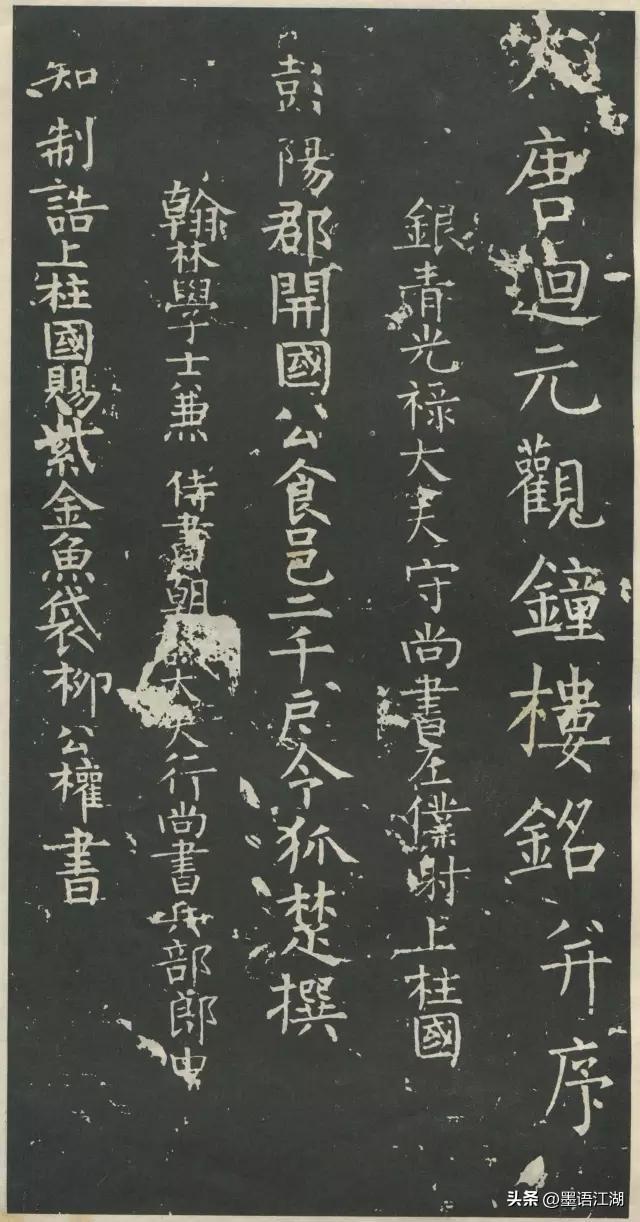 大唐迴元觀鐘樓銘并序
銀青光禄大夫守尚書左僕射上柱國
彭陽郡開國公食邑二千戶令狐楚撰
翰林學士兼侍書朝大夫行尚書兵部郎中
知制誥上柱國賜紫金魚袋柳公權書
头条 @墨语江湖